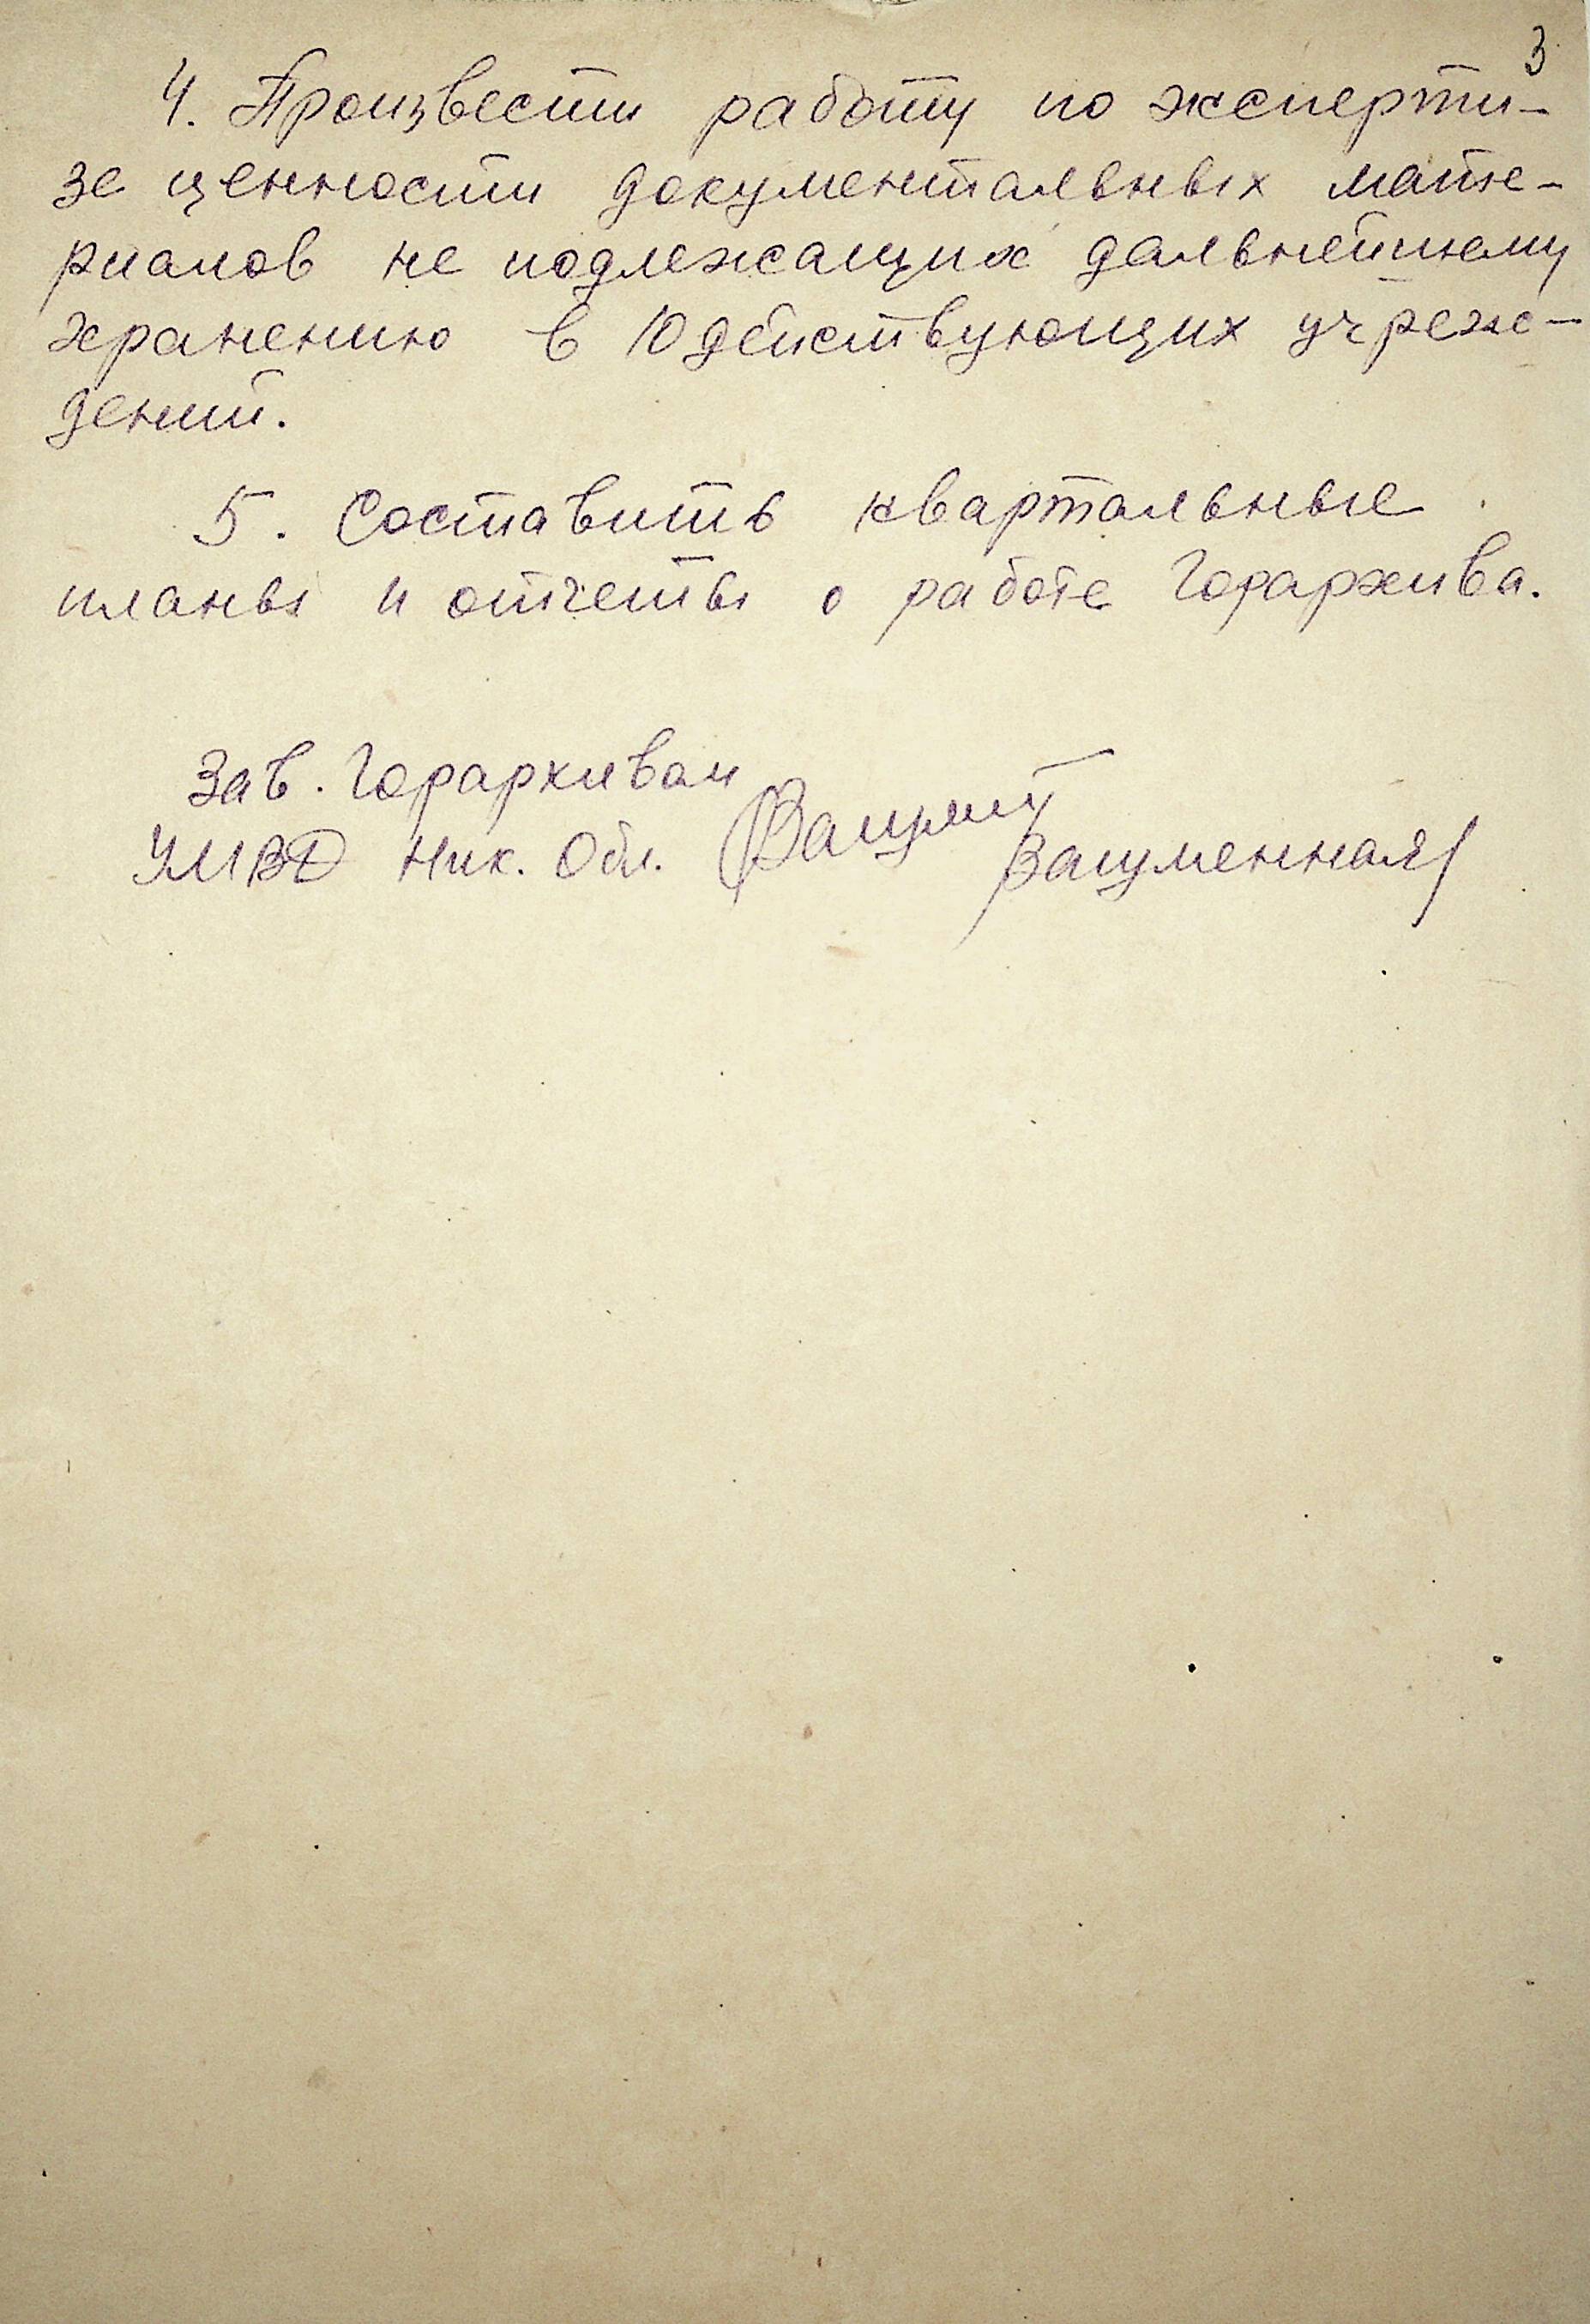 3
4. Произвести работу по эксперти-
зе ценности документальных мате-
риалов не подлежащих дальнейшему
хранению в 10 действующих учреж-
дений.
5. Составить квартальные
планы и отчеты о работе Горархива.
Зав. Горархивом
УМВД Ник. Обл. /Защуменная/